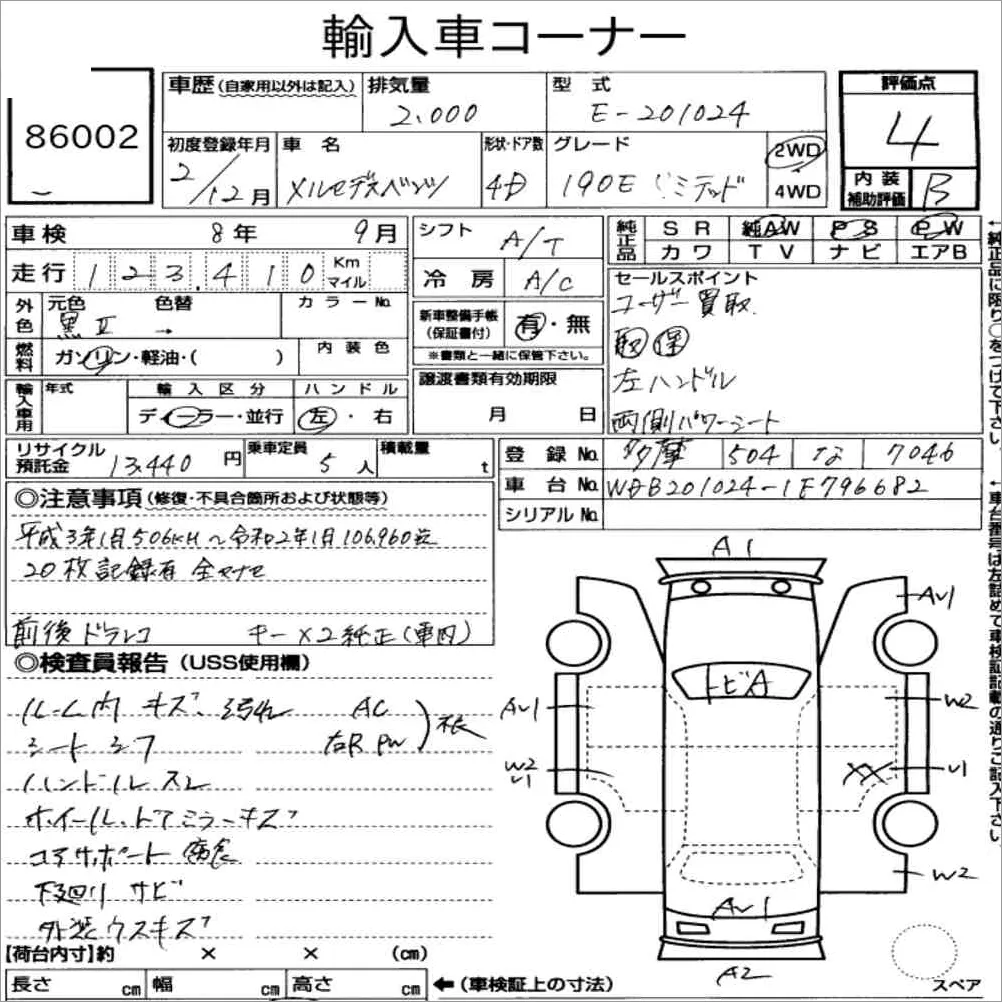 輸入車コーナー
86002
車歴(自家用以外は記入) 排気量 2.000 型式 E-201024 評価点 4
初度登録年月 2/12月 車名 メルセデスベンツ 形状・ドア数 4D グレード 190E リミテッド 2WD 4WD 内装補助評価 B
車検 8年 9月 シフト A/T 純正品 SR 純AW PS PW
カワ TV ナビ エアB
走行 123,410 Km マイル 冷房 A/C
外色 元色 黒 色替 → カラーNo.
燃料 ガソリン・軽油・( ) 内装色
新車整備手帳(保証書付) 有・無
※書類と一緒に保管下さい。
輸入車用 年式 輸入区分 ディーラー・並行 ハンドル 左・右
譲渡書類有効期限 月 日
セールスポイント
ユーザー買取
取 保
左ハンドル
両側パワーシート
←純正品に限り○をつけて下さい
リサイクル預託金 13,440円 乗車定員 5人 積載量 t
登録No. 多摩 504 な 7046
車台No. WDB201024-1F796682
シリアルNo.
←車台番号は左詰めで車検証記載の通りご記入下さい
◎注意事項(修復・不具合箇所および状態等)
平成3年1月506KM〜令和2年1月106,960迄
20枚記録有 全ヤナセ
前後ドラレコ キー×2純正(車内)
◎検査員報告(USS使用欄)
ルーム内 キズ、汚れ AC
シート シワ 右R PW
ハンドル スレ
ホイール、ドアミラーキズ
コアサポート 腐食
下廻り サビ
外装ウスキズ
A1
AV1
トビA
AV1
W2
W2
U1
XX
U1
W2
AV1
A2
スペア
【荷台内寸】約 × × (cm)
長さ cm 幅 cm 高さ cm ←(車検証上の寸法)